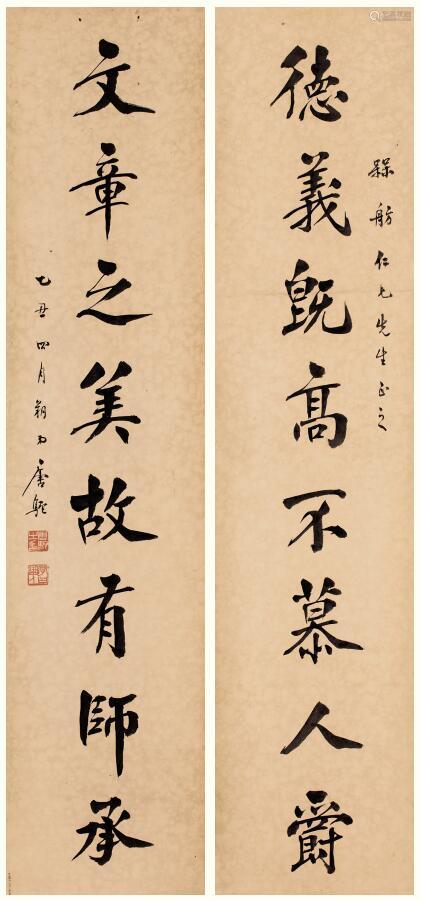 槑舫仁兄先生正之
德義既高不慕人爵
文章之美故有師承
乙丑四月朔日唐駝